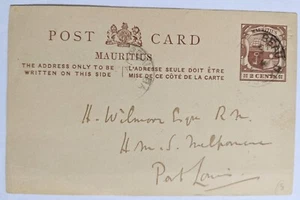 POST CARD
MAURITIUS
THE ADDRESS ONLY TO BE WRITTEN ON THIS SIDE
L'ADRESSE SEULE DOIT ÊTRE MISE DE CE CÔTÉ DE LA CARTE
MAURITIUS
2 CENTS
H. Wilmoor Esqre R.N.
H.M.S. Melpomene
Port Louis